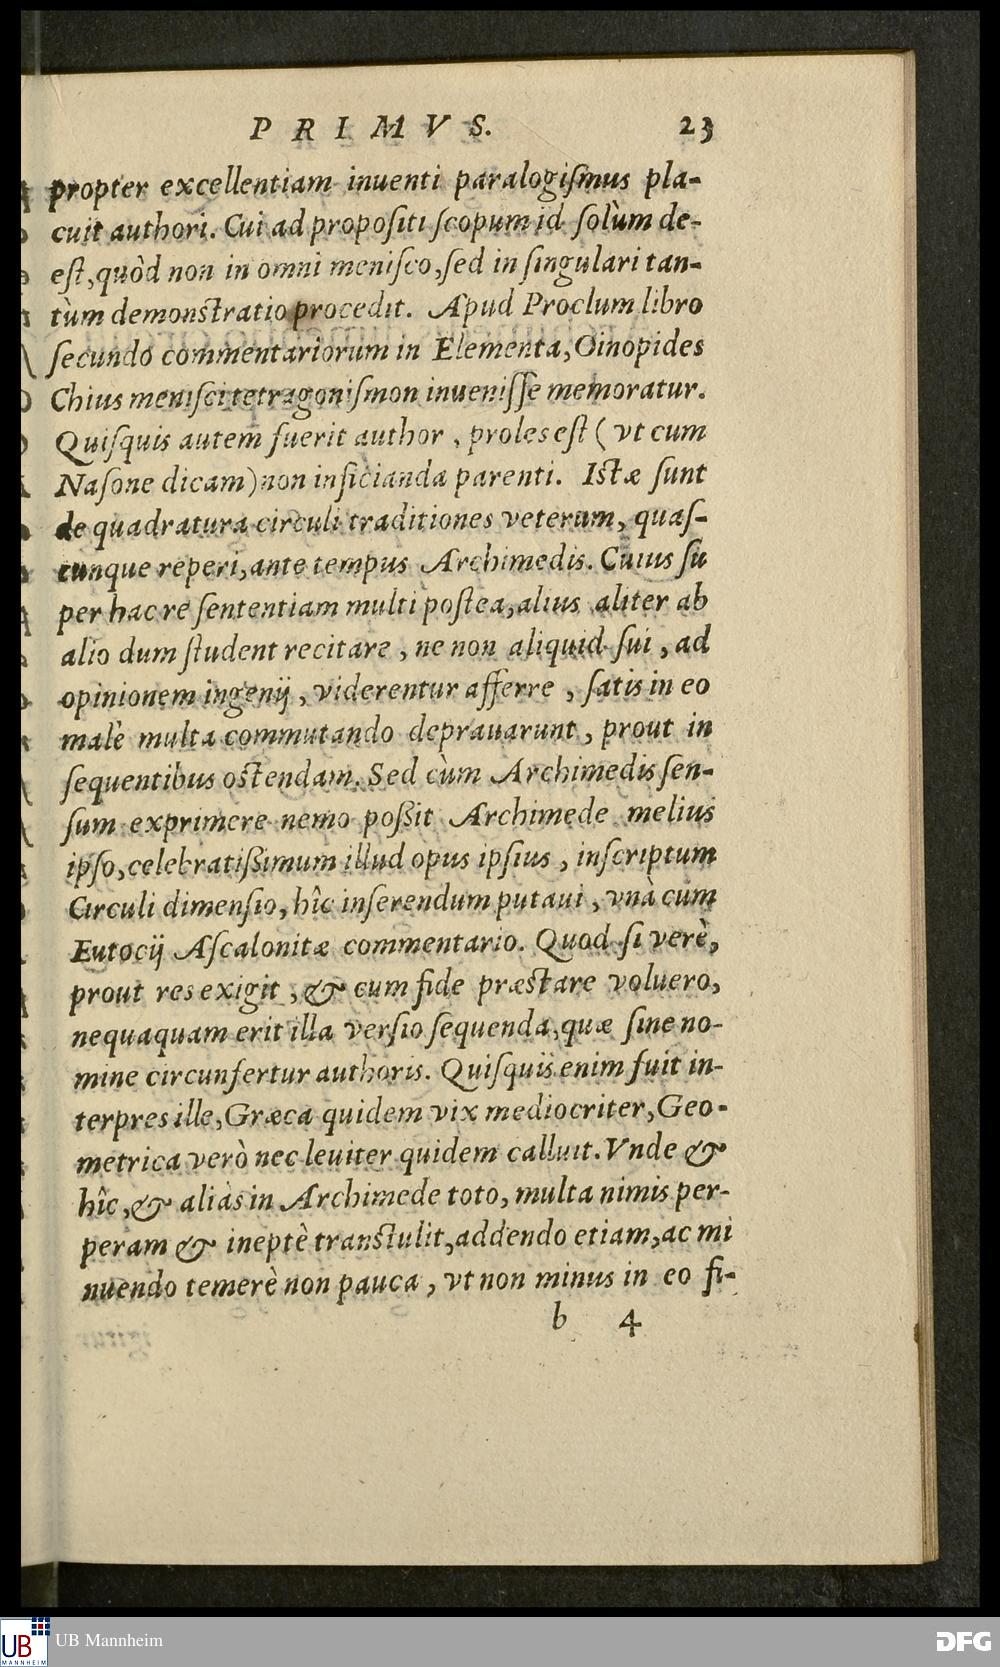 PRIMVS. 23
propter excellentiam inuenti paralogiſmus pla-
cuit authori. Cui ad propoſiti ſcopum id ſolùm de-
eſt, quòd non in omni meniſco, ſed in ſingulari tan-
tùm demonſtratio procedit. Apud Proclum libro
ſecundo commentariorum in Elementa, Oinopides
Chius meniſci tetragoniſmon inueniſſe memoratur.
Quiſquis autem fuerit author, proles eſt (vt cum
Naſone dicam) non inficianda parenti. Iſtæ ſunt
de quadratura circuli traditiones veterum, quaſ-
cunque reperi, ante tempus Archimedis. Cuius ſu
per hac re ſententiam multi poſtea, alius aliter ab
alio dum ſtudent recitare, ne non aliquid ſui, ad
opinionem ingenij, viderentur afferre, ſatis in eo
malè multa commutando deprauarunt, prout in
ſequentibus oſtendam. Sed cùm Archimedis ſen-
ſum exprimere nemo poßit Archimede melius
ipſo, celebratißimum illud opus ipſius, inſcriptum
Circuli dimenſio, hîc inſerendum putaui, vnà cum
Eutocij Aſcalonitæ commentario. Quod ſi verè,
prout res exigit, & cum fide præſtare voluero,
nequaquam erit illa verſio ſequenda, quæ ſine no-
mine circunfertur authoris. Quiſquis enim fuit in-
terpres ille, Græca quidem vix mediocriter, Geo-
metrica verò nec leuiter quidem calluit. Vnde &
hîc, & aliàs in Archimede toto, multa nimis per-
peram & ineptè tranſtulit, addendo etiam, ac mi
nuendo temerè non pauca, vt non minus in eo fi-
b 4
UB Mannheim
UB
MANNHEIM
DFG